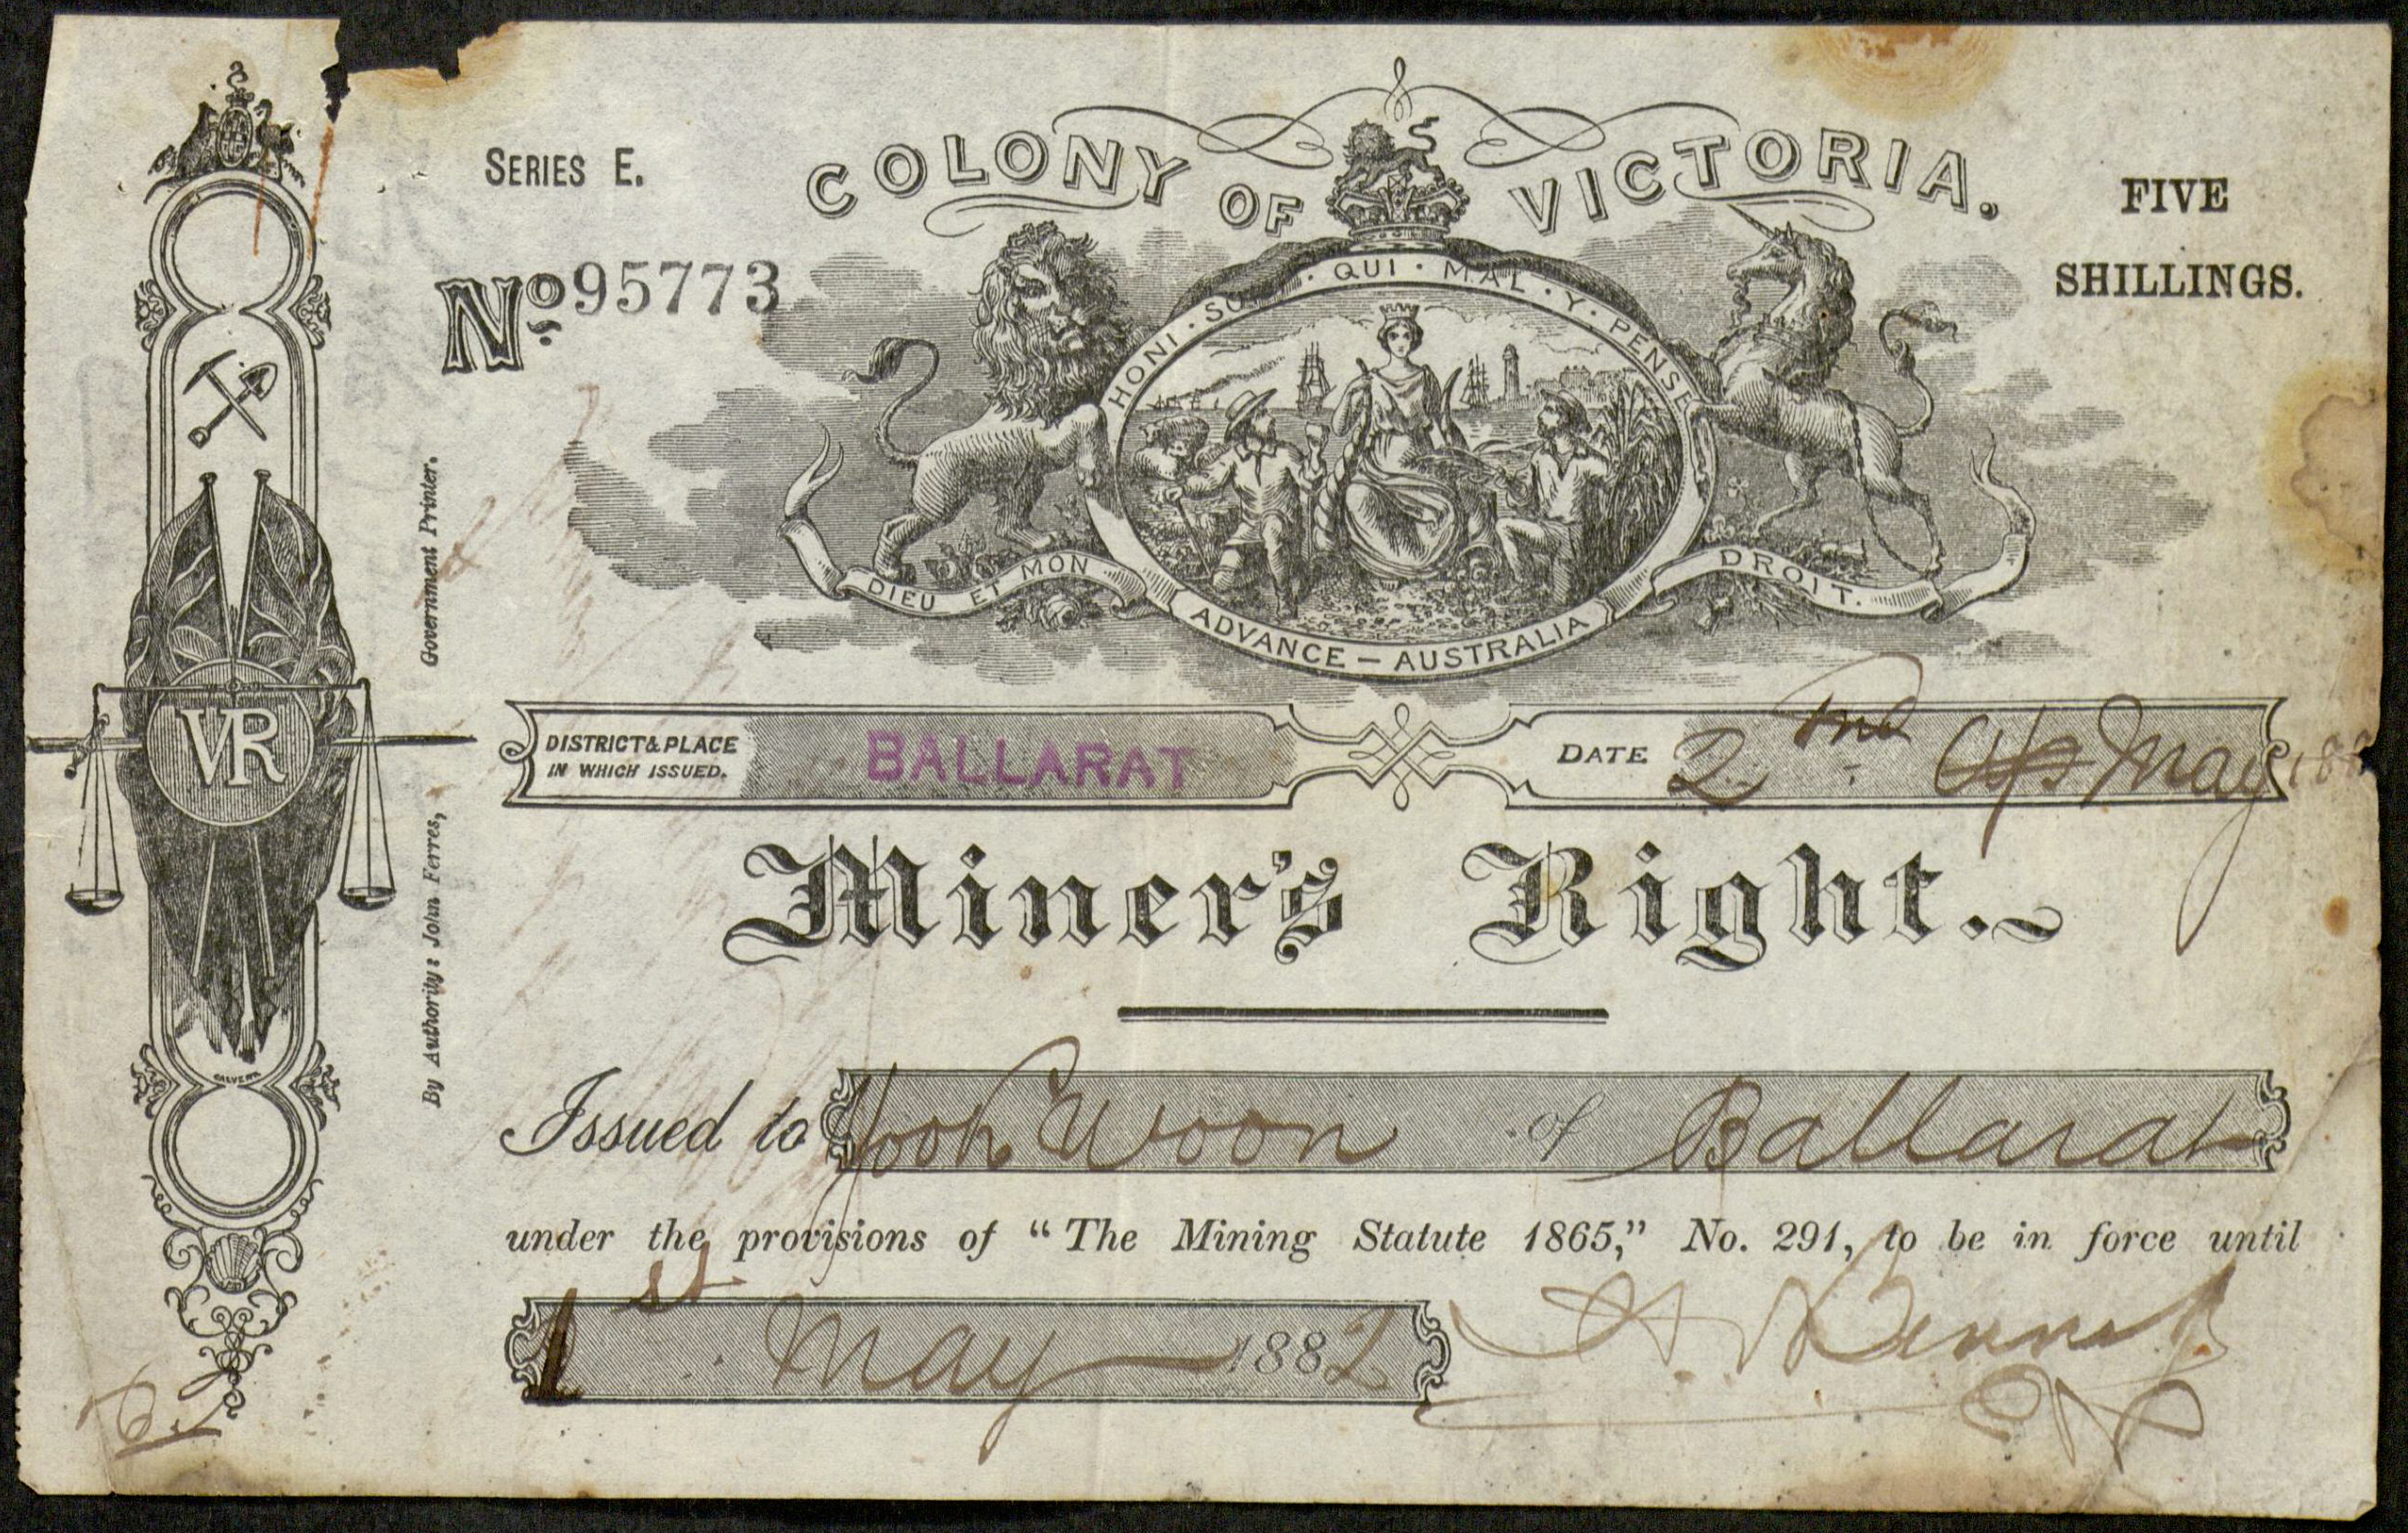 SERIES E.
COLONY OF VICTORIA.
FIVE
SHILLINGS.
No 95773
HONI · SOIT · QUI · MAL · Y · PENSE
DIEU ET MON DROIT.
ADVANCE — AUSTRALIA
VR
CALVERT
By Authority: John Ferres, Government Printer.
DISTRICT & PLACE
IN WHICH ISSUED.
BALLARAT
DATE 2nd May 188
Miner's Right.
Issued to Hook Woon of Ballarat
under the provisions of "The Mining Statute 1865," No. 291, to be in force until
1st May 1882